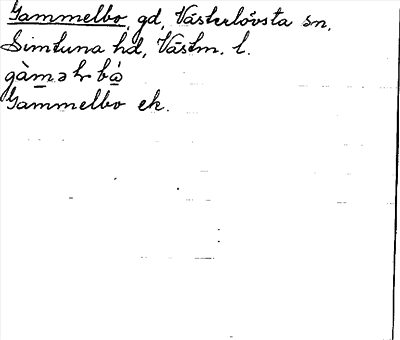 Gammelbo, gd, Västerlövsta sn,
Simtuna hd, Västm. l.
Gammelbo ek.